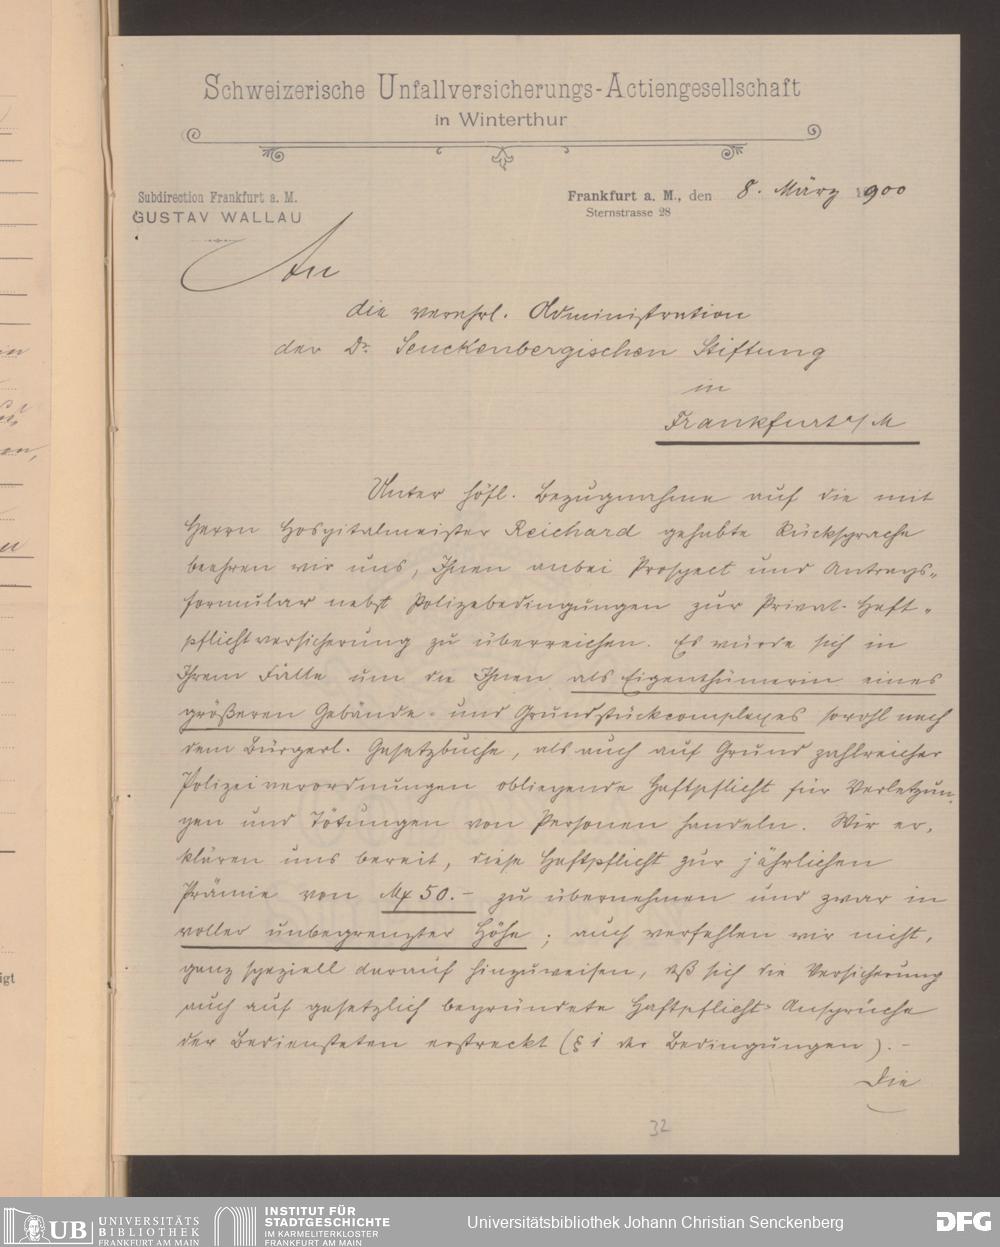 Schweizerische Unfallversicherungs-Actiengesellschaft
in Winterthur
Subdirection Frankfurt a. M.
GUSTAV WALLAU
Frankfurt a. M., den 8. März 1900
Sternstrasse 28
An
die verehrl. Administration
der Dr. Senckenbergischen Stiftung
in
Frankfurt a/M
Unter höfl. Bezugnahme auf die mit
Herrn Hospitalmeister Reichard gehabte Rücksprache
beehren wir uns, Ihnen anbei Prospect und Antrags-
formular nebst Polizebedingungen zur Privat-Haft-
pflichtversicherung zu überreichen. Es würde sich in
Ihrem Falle um die Ihnen als Eigenthümerin eines
größeren Gebäude- und Grundstückcomplexes sowohl nach
dem Bürgerl. Gesetzbuche, als auch auf Grund zahlreicher
Polizeiverordnungen obliegende Haftpflicht für Verletzun-
gen und Tötungen von Personen handeln. Wir er-
klären uns bereit, diese Haftpflicht zur jährlichen
Prämie von M 50.- zu übernehmen und zwar in
voller unbegrenzter Höhe; auch verfehlen wir nicht,
ganz speziell darauf hinzuweisen, daß sich die Versicherung
auch auf gesetzlich begründete Haftpflicht-Ansprüche
der Bediensteten erstreckt (§ 1 der Bedingungen). -
Die
32
igt
UB UNIVERSITÄTS
BIBLIOTHEK
FRANKFURT AM MAIN
INSTITUT FÜR
STADTGESCHICHTE
IM KARMELITERKLOSTER
FRANKFURT AM MAIN
Universitätsbibliothek Johann Christian Senckenberg
DFG